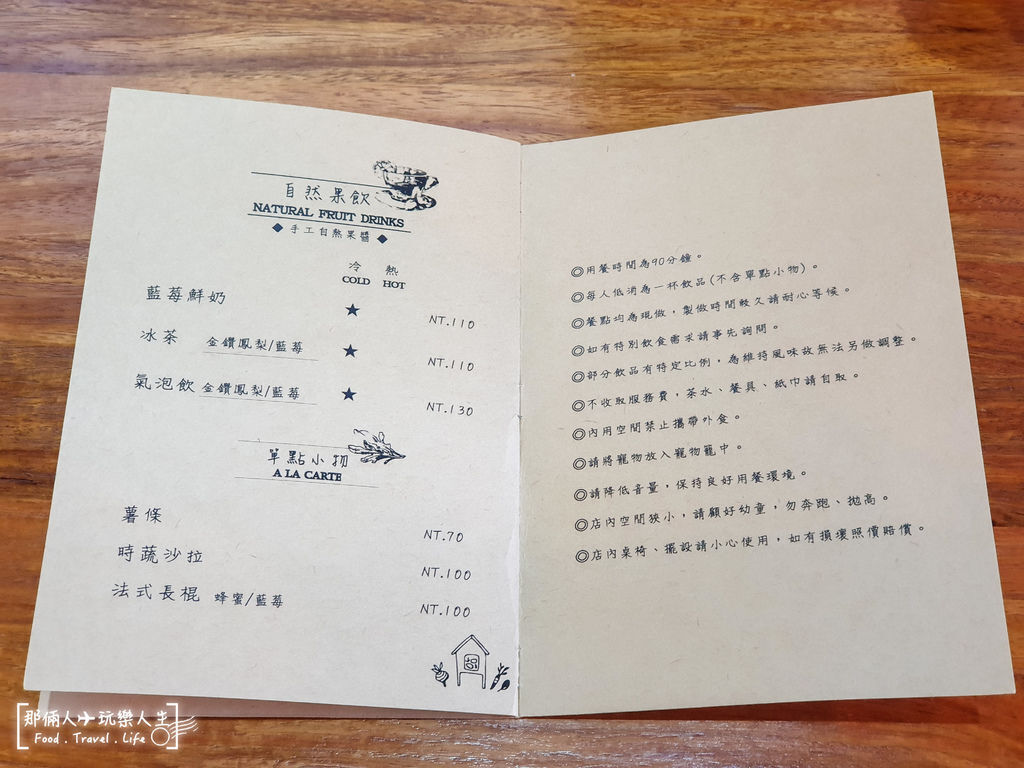 自然果飲
NATURAL FRUIT DRINKS
◆ 手工自熬果醬 ◆
冷 熱
COLD HOT
藍莓鮮奶 ★ NT.110
冰茶 金鑽鳳梨/藍莓 ★ NT.110
氣泡飲 金鑽鳳梨/藍莓 ★ NT.130
單點小物
A LA CARTE
薯條 NT.70
時蔬沙拉 NT.100
法式長棍 蜂蜜/藍莓 NT.100
◎用餐時間為90分鐘。
◎每人低消為一杯飲品(不含單點小物)。
◎餐點均為現做，製做時間較久請耐心等候。
◎如有特別飲食需求請事先詢問。
◎部分飲品有特定比例，為維持風味故無法另做調整。
◎不收取服務費，茶水、餐具、紙巾請自取。
◎內用空間禁止攜帶外食。
◎請將寵物放入寵物籠中。
◎請降低音量，保持良好用餐環境。
◎店內空間狹小，請顧好幼童，勿奔跑、拋高。
◎店內桌椅、擺設請小心使用，如有損壞照價賠償。
那倆人✈玩樂人生
Food . Travel . Life